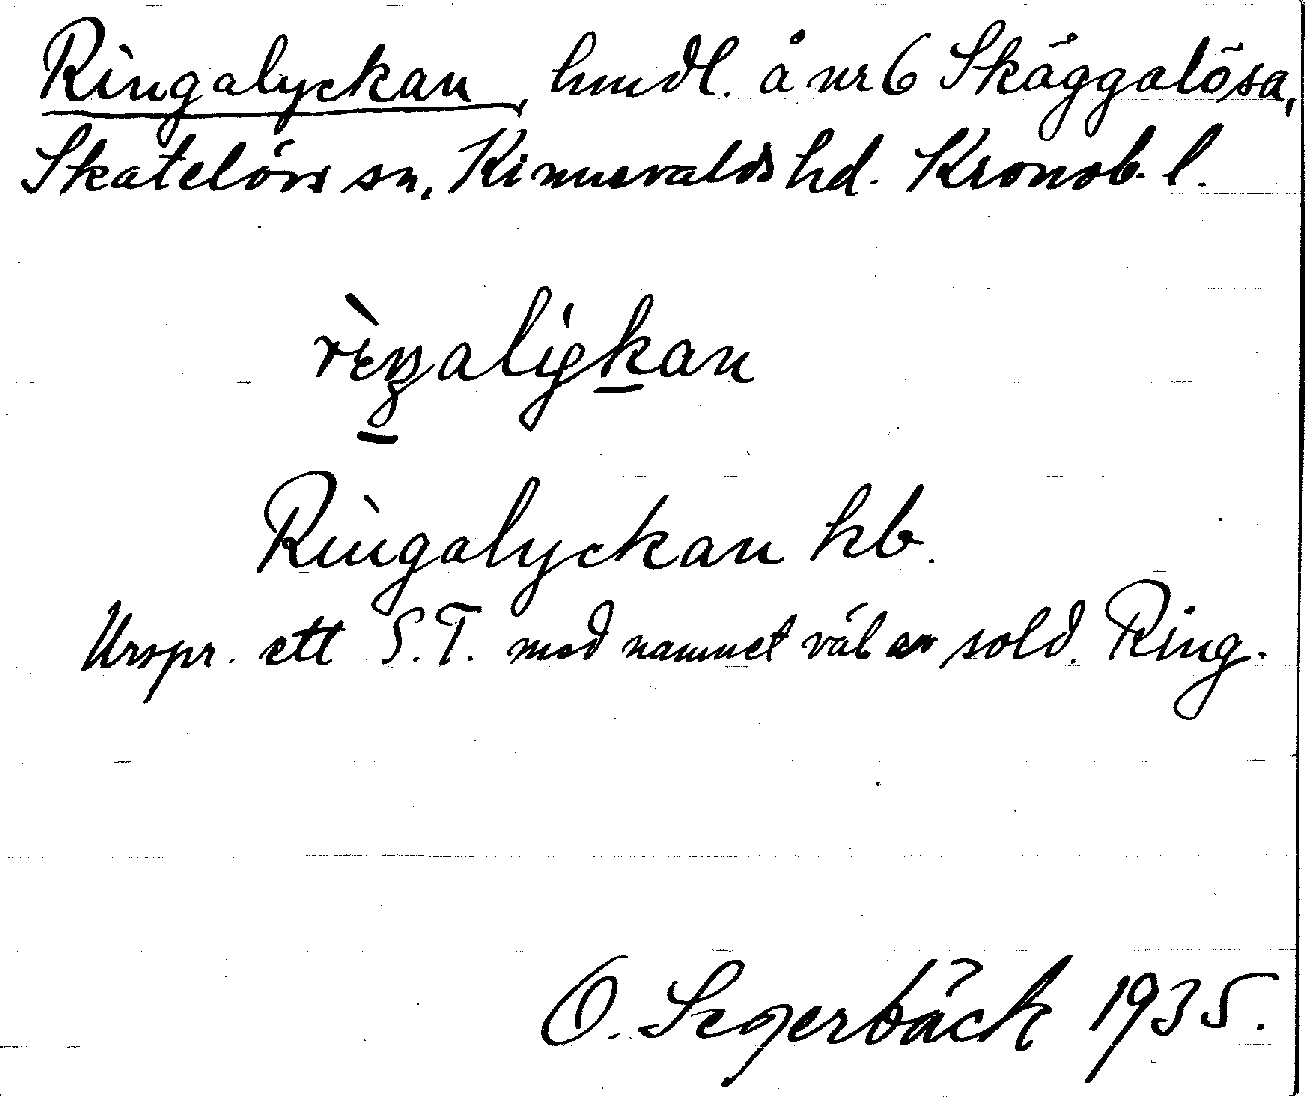 Ringalyckan, hmdl. å nr 6 Skäggalösa,
Skatelövs sn, Kinnevalds hd. Kronob. l.
Ringalyckan kb.
Urspr. ett S.T. med namnet väl av sold. Ring.
O. Segerbäck 1935.